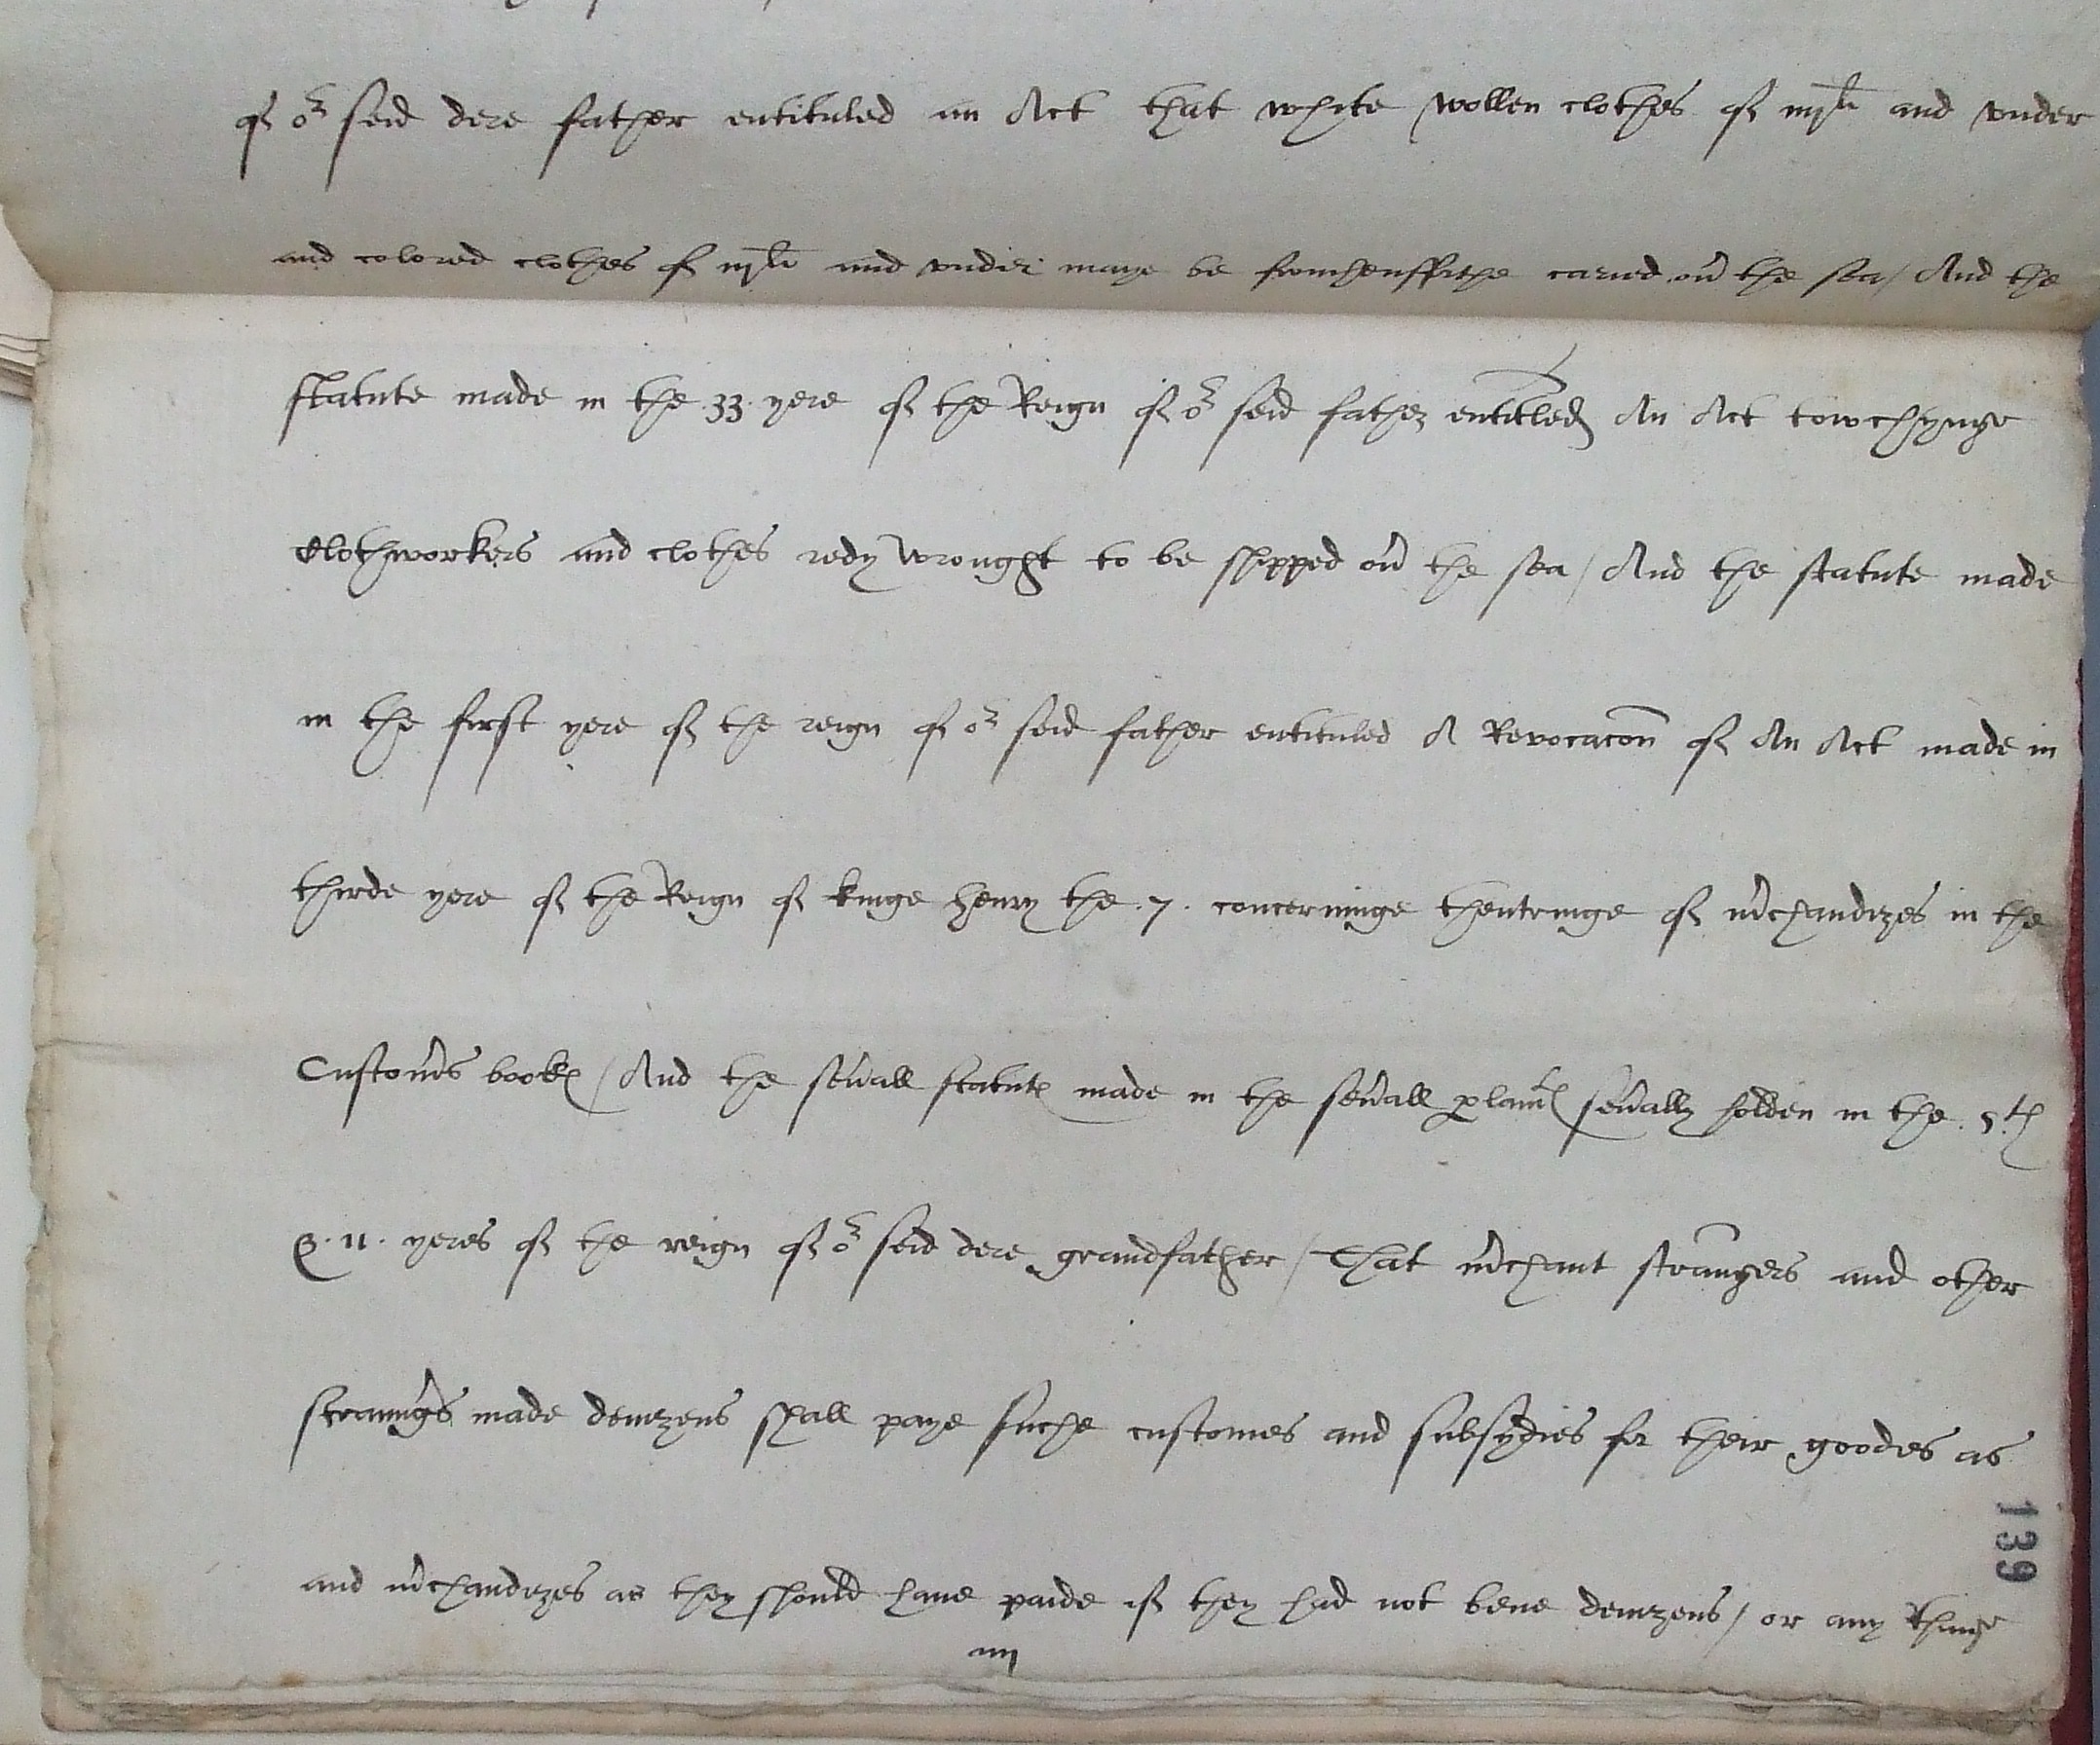 of or seid dere father entituled an Act that whyte wollen clothes of iiijli and under
and colored clothes of iijli and under maye be fromhensfithe caried ov the sea / And the
statute made in the .33. yere of the Reign of or seid father entitled An Act towchynge
Clothworkers and clothes redy wrought to be shipped ov the sea / And the statute made
in the first yere of the reign of or seid father entituled A Revocacon of An Act made in
thirde yere of the Reign of kinge henry the .7. concerninge thentringe of mchandizes in the
Customs bookes / And the sevall statutes made in the sevall plamtes sevally holden in the .3.th
& .11. yeres of the reign of or seid dere grandfather / That mchant strangers and other
straungs made denizens shall paye suche customes and subsydies for their goodes as
and mchandizes as they should have paide if they had not bene denizens / or any thinge
iiij
139